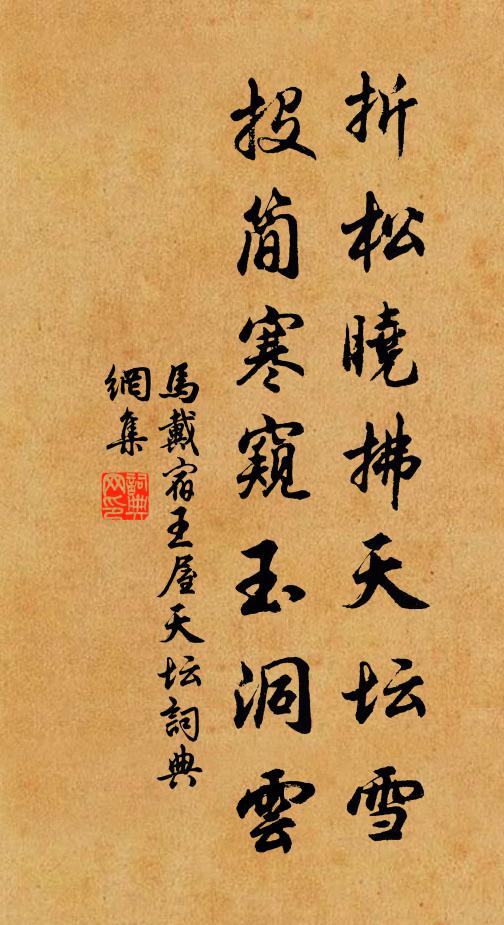 折松曉拂天坛雪
投简寒窺玉洞雲
馬戴宿王屋天坛詞典
網集
詞典
网印